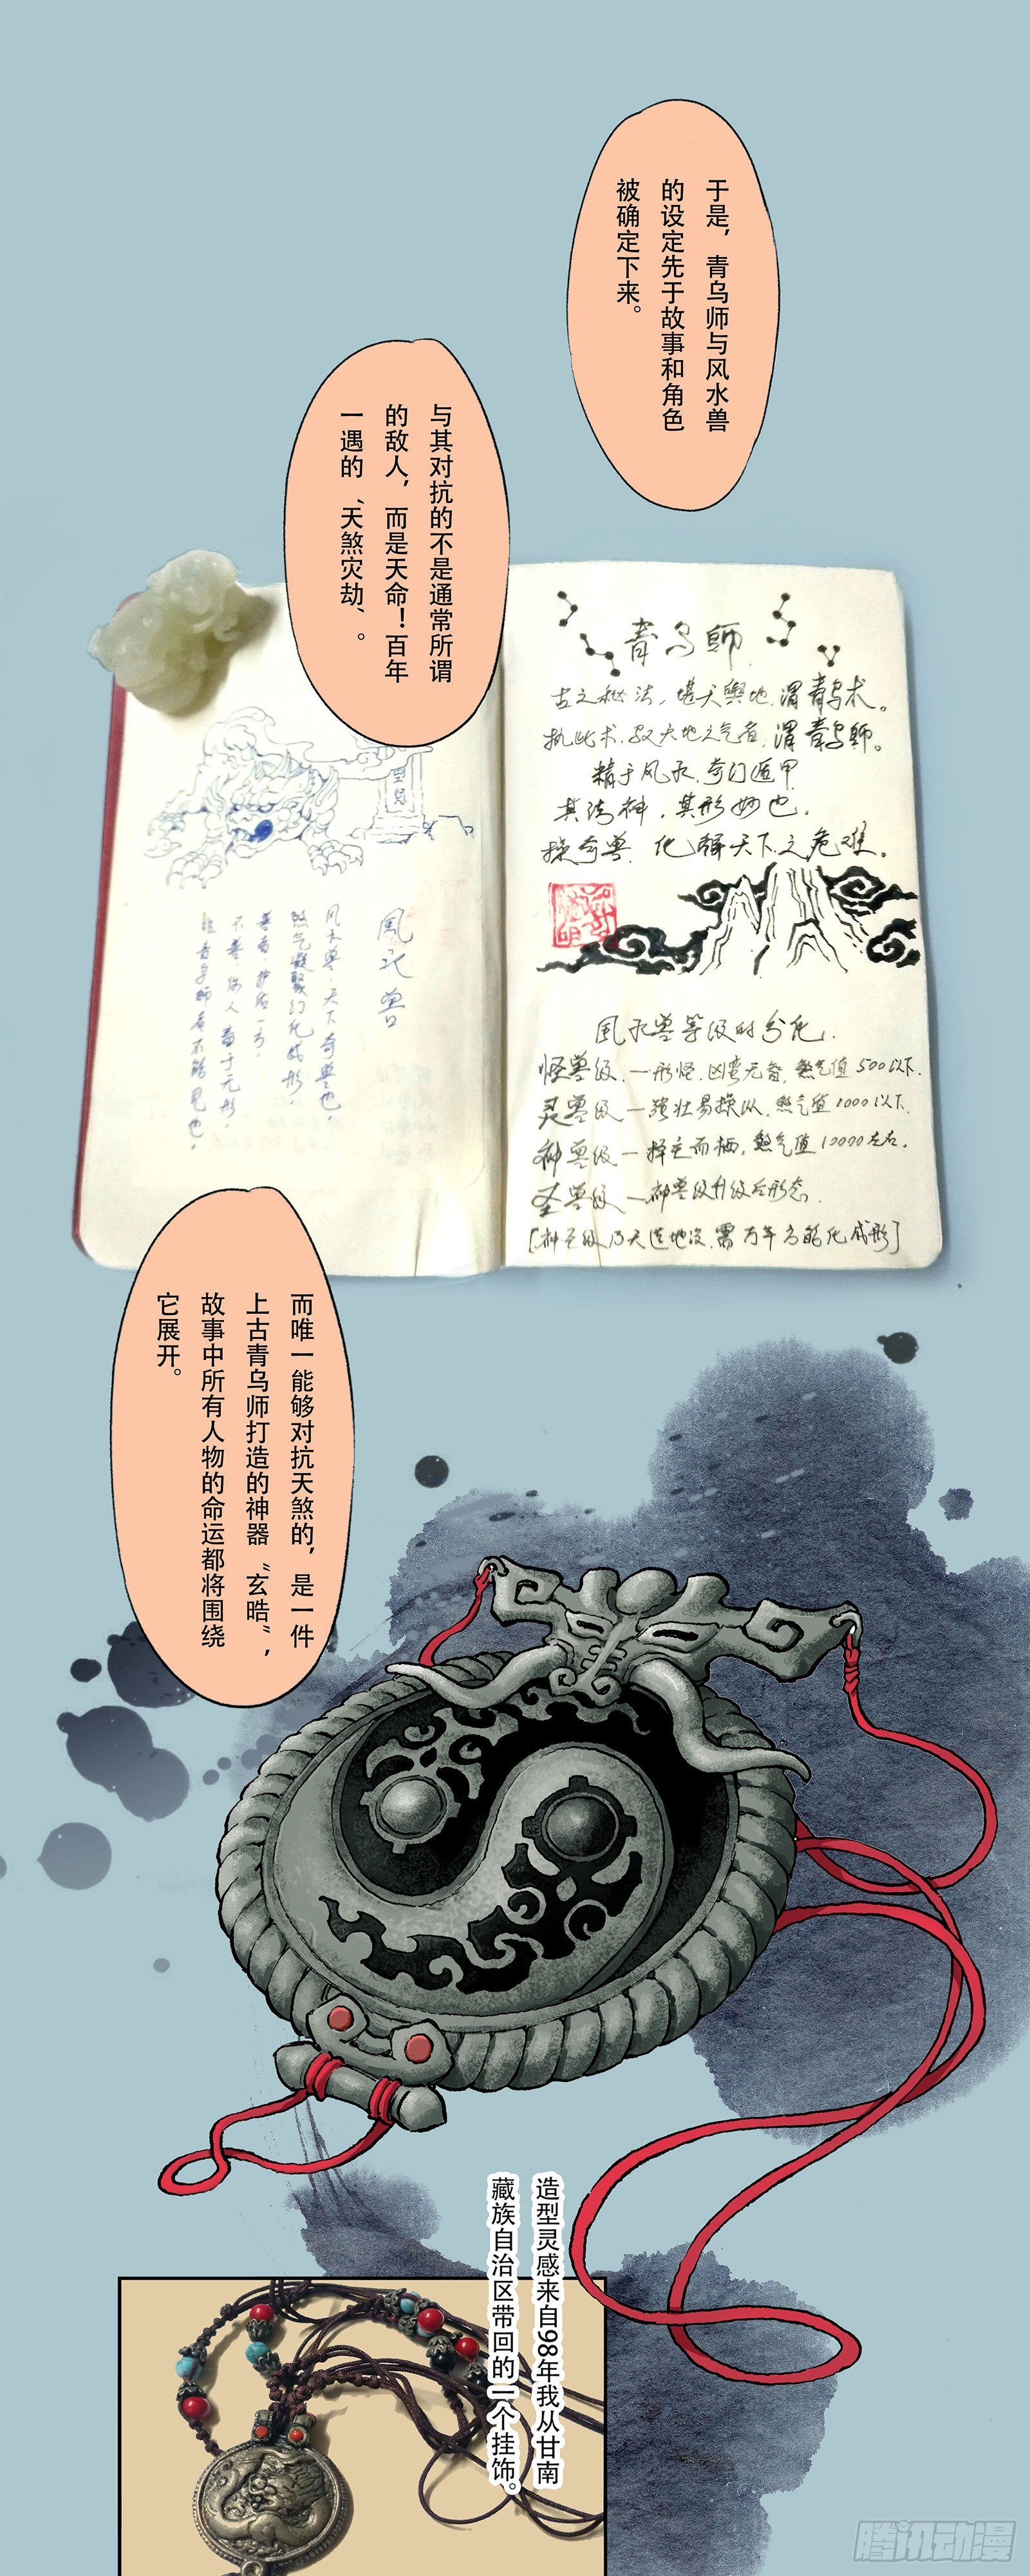 于是，青乌师与风水兽
的设定先于故事和角色
被确定下来。
与其对抗的不是通常所谓
的敌人，而是天命！百年
一遇的“天煞灾劫”。
青乌師
古之秘法，堪天輿地，谓青乌术。
执此术，驭天地之气者，谓青乌師。
精于风水，奇门遁甲
其法神，其形妙也。
操奇兽，化解天下之危难。
風水兽
风水兽，天下奇兽也，
煞气凝聚幻化成形，
善者，护佑一方，
不善，伤人畜于无形，
非青乌師者不能見也。
風水兽等级的分化
怪兽级—形怪，凶蛮无智，煞气值500以下.
灵兽级—强壮易操纵，煞气值1000以下.
神兽级—择主而栖，煞气值10000左右.
圣兽级—神兽级升级后形态.
[神圣级乃天造地设，需万年方能化成形]
而唯一能够对抗天煞的，是一件
上古青乌师打造的神器“玄晧”，
故事中所有人物的命运都将围绕
它展开。
造型灵感来自98年我从甘南
藏族自治区带回的一个挂饰。
腾讯动漫